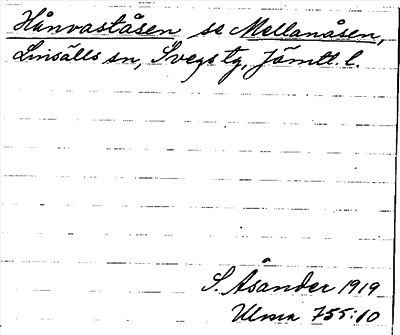 Hånvaståsen se Mellanåsen,
Linsälls sn, Svegs tg, Jämtl. l.
S. Åsander 1919
Ulma 755:10